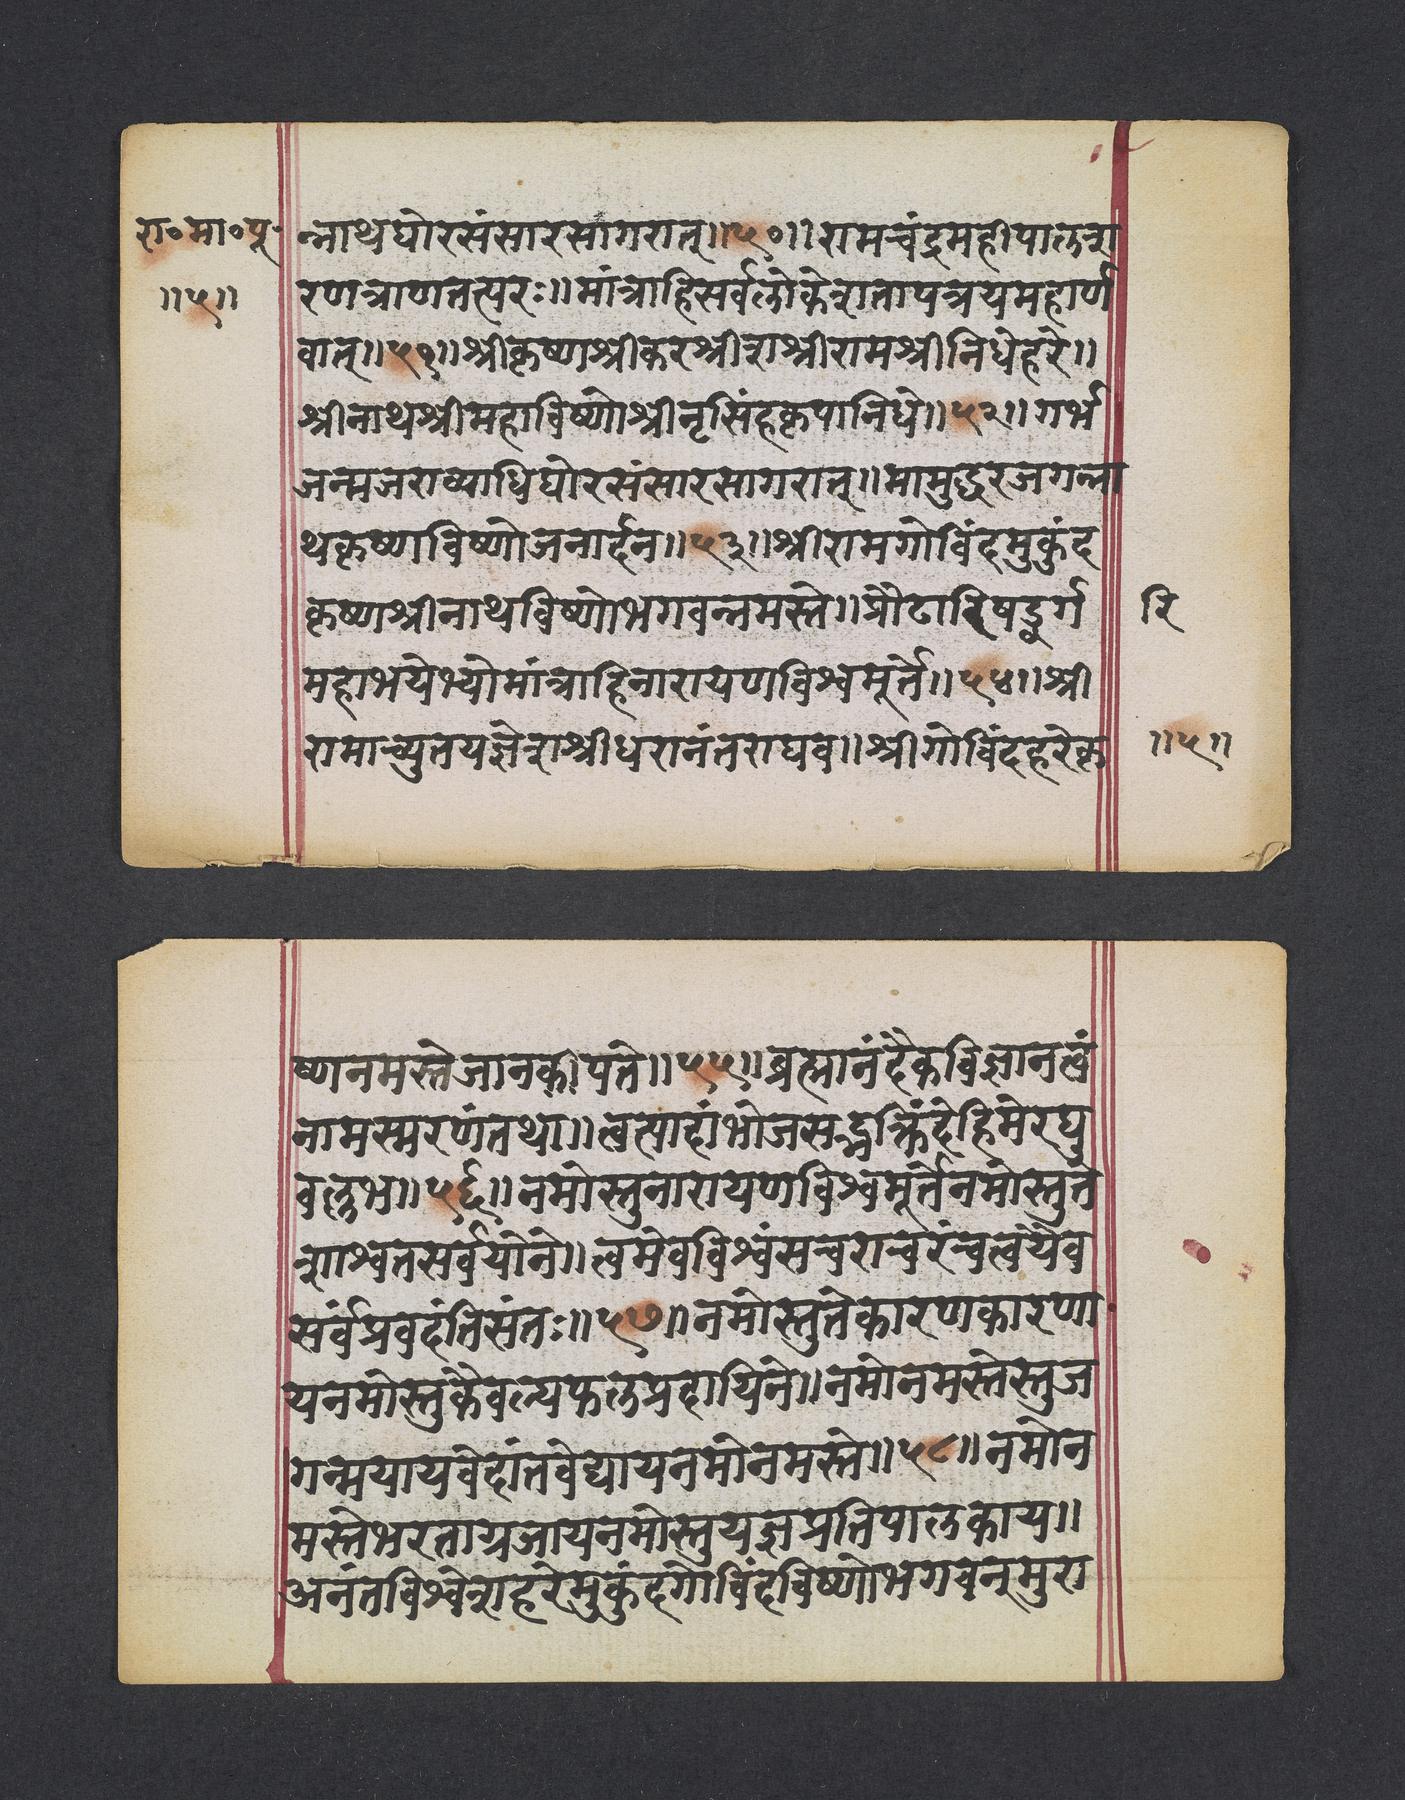 रा॰मा॰पू॰
॥५॥
न्नाथघोरसंसारसागरात्॥५०॥रामचंद्रमहीपालश
रणत्राणतत्परः॥मांत्राहिसर्वलोकेशतापत्रयमहार्ण
वात्॥५१॥श्रीकृष्णश्रीकरश्रीशश्रीरामश्रीनिधेहरे॥
श्रीनाथश्रीमहाविष्णोश्रीनृसिंहकृपानिधे॥५२॥गर्भ
जन्मजराव्याधिघोरसंसारसागरात्॥मामुद्धरजगन्ना
थकृष्णविष्णोजनार्दन॥५३॥श्रीरामगोविंदमुकुंद
कृष्णश्रीनाथविष्णोभगवन्नमस्ते॥प्रौढारिषड्वर्ग
रि
महाभयेभ्योमांत्राहिनारायणविश्वमूर्ते॥५४॥श्री
रामाच्युतयज्ञेशश्रीधरानंतराघव॥श्रीगोविंदहरेकृ
॥५॥
ष्णनमस्तेजानकीपते॥५५॥ब्रह्मानंदैकविज्ञानत्वं
नामस्मरणंतथा॥त्वत्पादांभोजसद्भक्तिंदेहिमेरघु
वल्लभ॥५६॥नमोस्तुनारायणविश्वमूर्तेनमोस्तुते
शाश्वतसर्वयोने॥त्वमेवविश्वंसचराचरंचत्वयेव
सर्वंप्रवदंतिसंतः॥५७॥नमोस्तुतेकारणकारणा
यनमोस्तुकैवल्यफलप्रदायिने॥नमोनमस्तेस्तुज
गन्मयायवेदांतवेद्यायनमोनमस्ते॥५८॥नमोन
मस्तेभरताग्रजायनमोस्तुयज्ञप्रतिपालकाय॥
अनंतविश्वेशहरेमुकुंदगोविंदविष्णोभगवन्मुरा